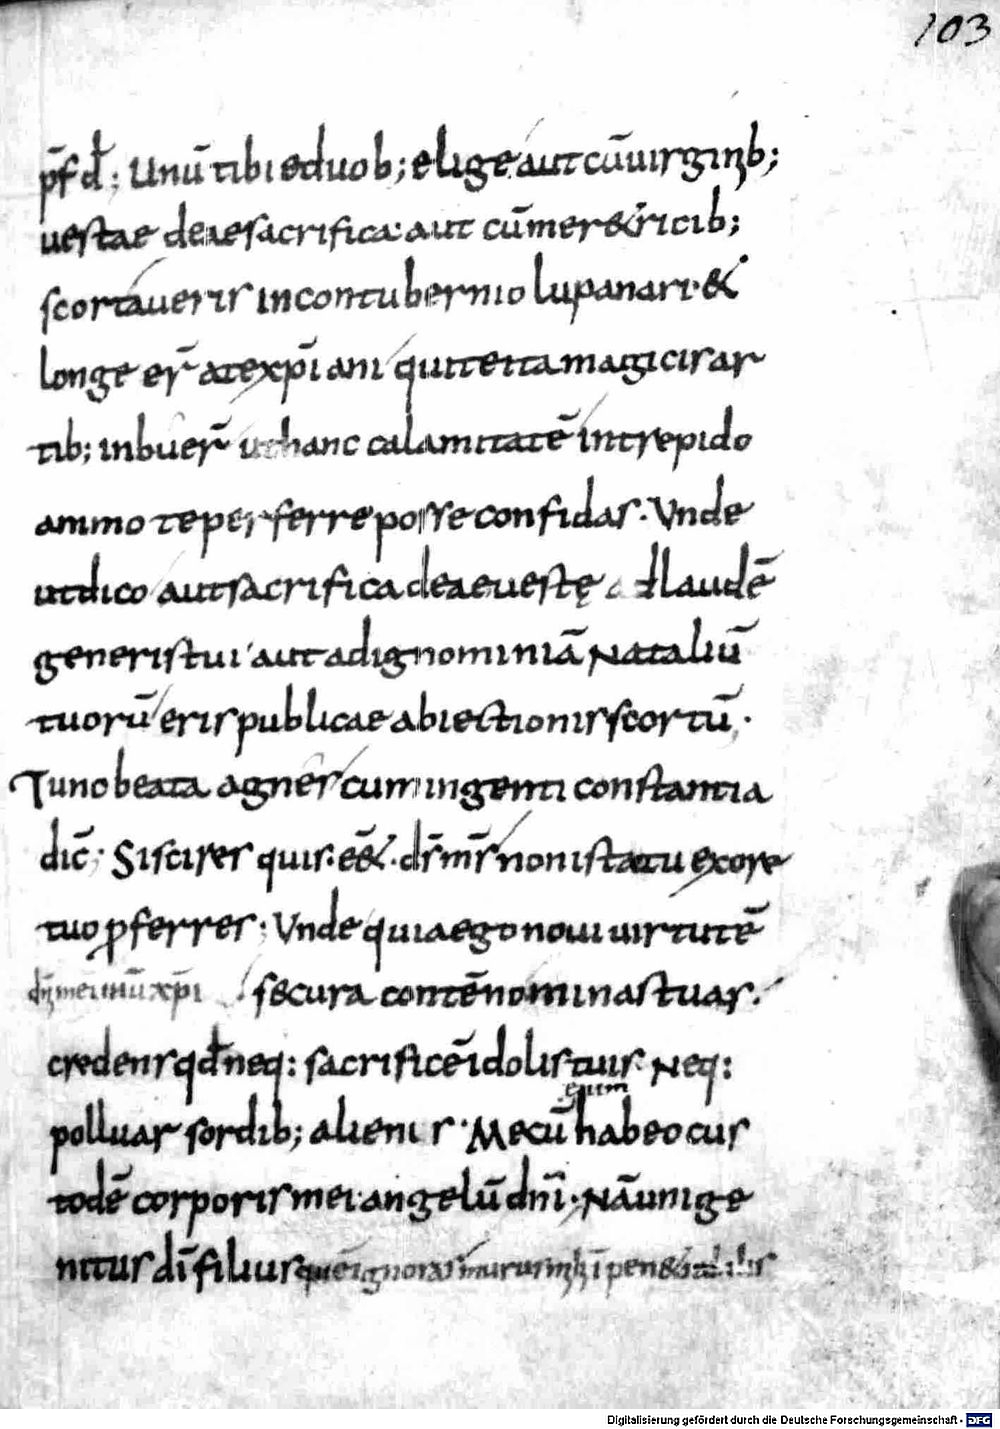 103
p̄f d̄; Unū tibi e duob; elige aut cū uirginib;
uestae deae sacrifica· aut cū mer&ricib;
scortaueris in contubernio lupanari· &
longe er̄ a te xp̄iani qui te ita magicis ar
tib; inbuer̄ ut hanc calamitatē intrepido
animo te perferre posse confidas· Unde
ut dico aut sacrifica deae uestę ad laudē
generis tui· aut ad ignominiā Nataliū
tuorū eris publicae abiectionis scortū·
Tunc beata agnes cum ingenti constantia
dic̄· Si scires quis· ē & d̄s m̄s non ista tu ex ore
tuo p̄ferres; Unde quia ego noui uirtutē
dn̄i mei ihū xp̄i secura contēno minas tuas·
credens qd̄ neq; sacrificē idolis tuis Neq;
polluar sordib; alienis· Mecū enim habeo cus
todē corporis mei angelū dn̄i· Nā unige
nitus dī filius quē ignoras murus mihi ē inpen&rabilis
Digitalisierung gefördert durch die Deutsche Forschungsgemeinschaft - DFG